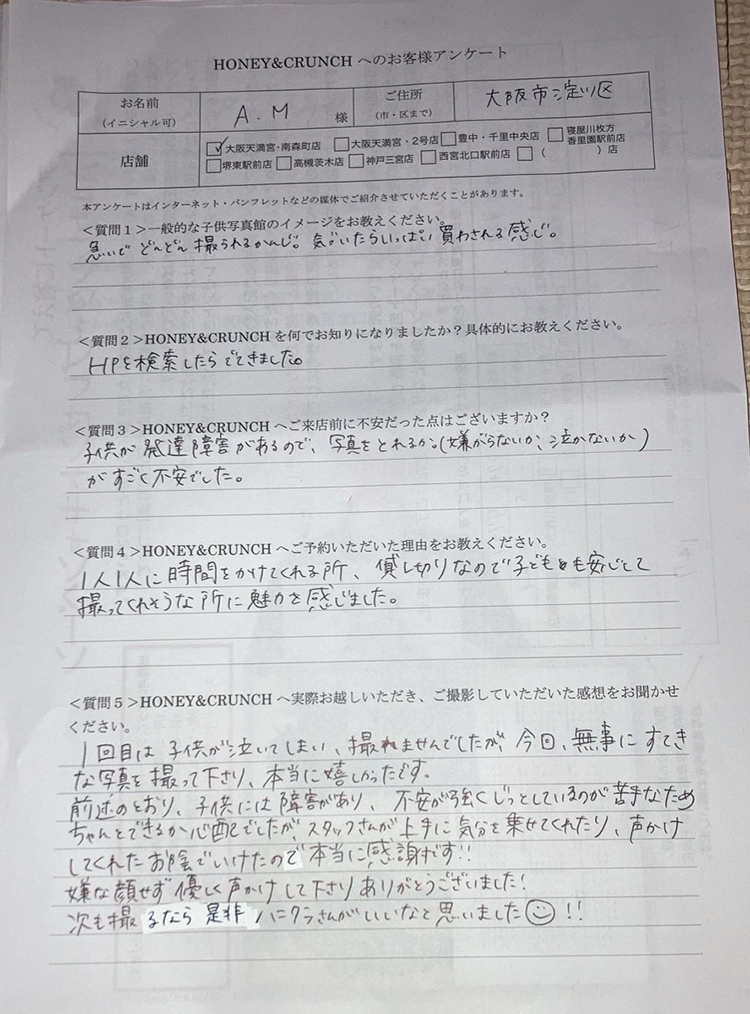 HONEY&CRUNCH へのお客様アンケート
お名前
(イニシャル可)
A.M 様
ご住所
(市・区まで)
大阪市淀川区
店舗
✓大阪天満宮・南森町店 □大阪天満宮・2号店 □豊中・千里中央店 □寝屋川枚方香里園駅前店
□堺東駅前店 □高槻茨木店 □神戸三宮店 □西宮北口駅前店 □( )店
本アンケートはインターネット・パンフレットなどの媒体でご紹介させていただくことがあります。
<質問1>一般的な子供写真館のイメージをお教えください。
急いで どんどん 撮られるかんじ。気づいたらいっぱい 買わされる感じ。
<質問2>HONEY&CRUNCH を何でお知りになりましたか?具体的にお教えください。
HPを検索したらでてきました。
<質問3>HONEY&CRUNCH へご来店前に不安だった点はございますか?
子供が 発達障害があるので、写真をとれるか。(嫌がらないか、泣かないか)
がすごく不安でした。
<質問4>HONEY&CRUNCH へご予約いただいた理由をお教えください。
1人1人に時間をかけてくれる所、貸し切りなので子どもも安心して
撮ってくれそうな所に魅力を感じました。
<質問5>HONEY&CRUNCH へ実際お越しいただき、ご撮影していただいた感想をお聞かせ
ください。
1回目は 子供が泣いてしまい、撮れませんでしたが、今回、無事に すてき
な写真を撮って下さり、本当に嬉しかったです。
前述のとおり、子供には障害があり、不安が強くじっとしているのが苦手なため
ちゃんとできるか心配でしたが、スタッフさんが上手に気分を乗せてくれたり、声かけ
してくれたお陰でいけたので本当に感謝です!!
嫌な顔せず優しく声かけして下さりありがとうございました!
次も撮るなら是非ハニクラさんがいいなと思いました☺!!